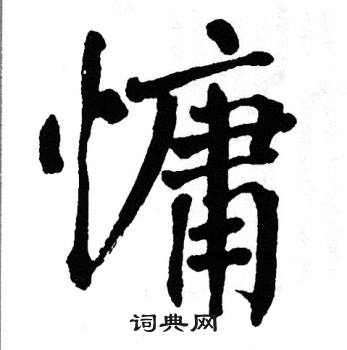 慵
词典网